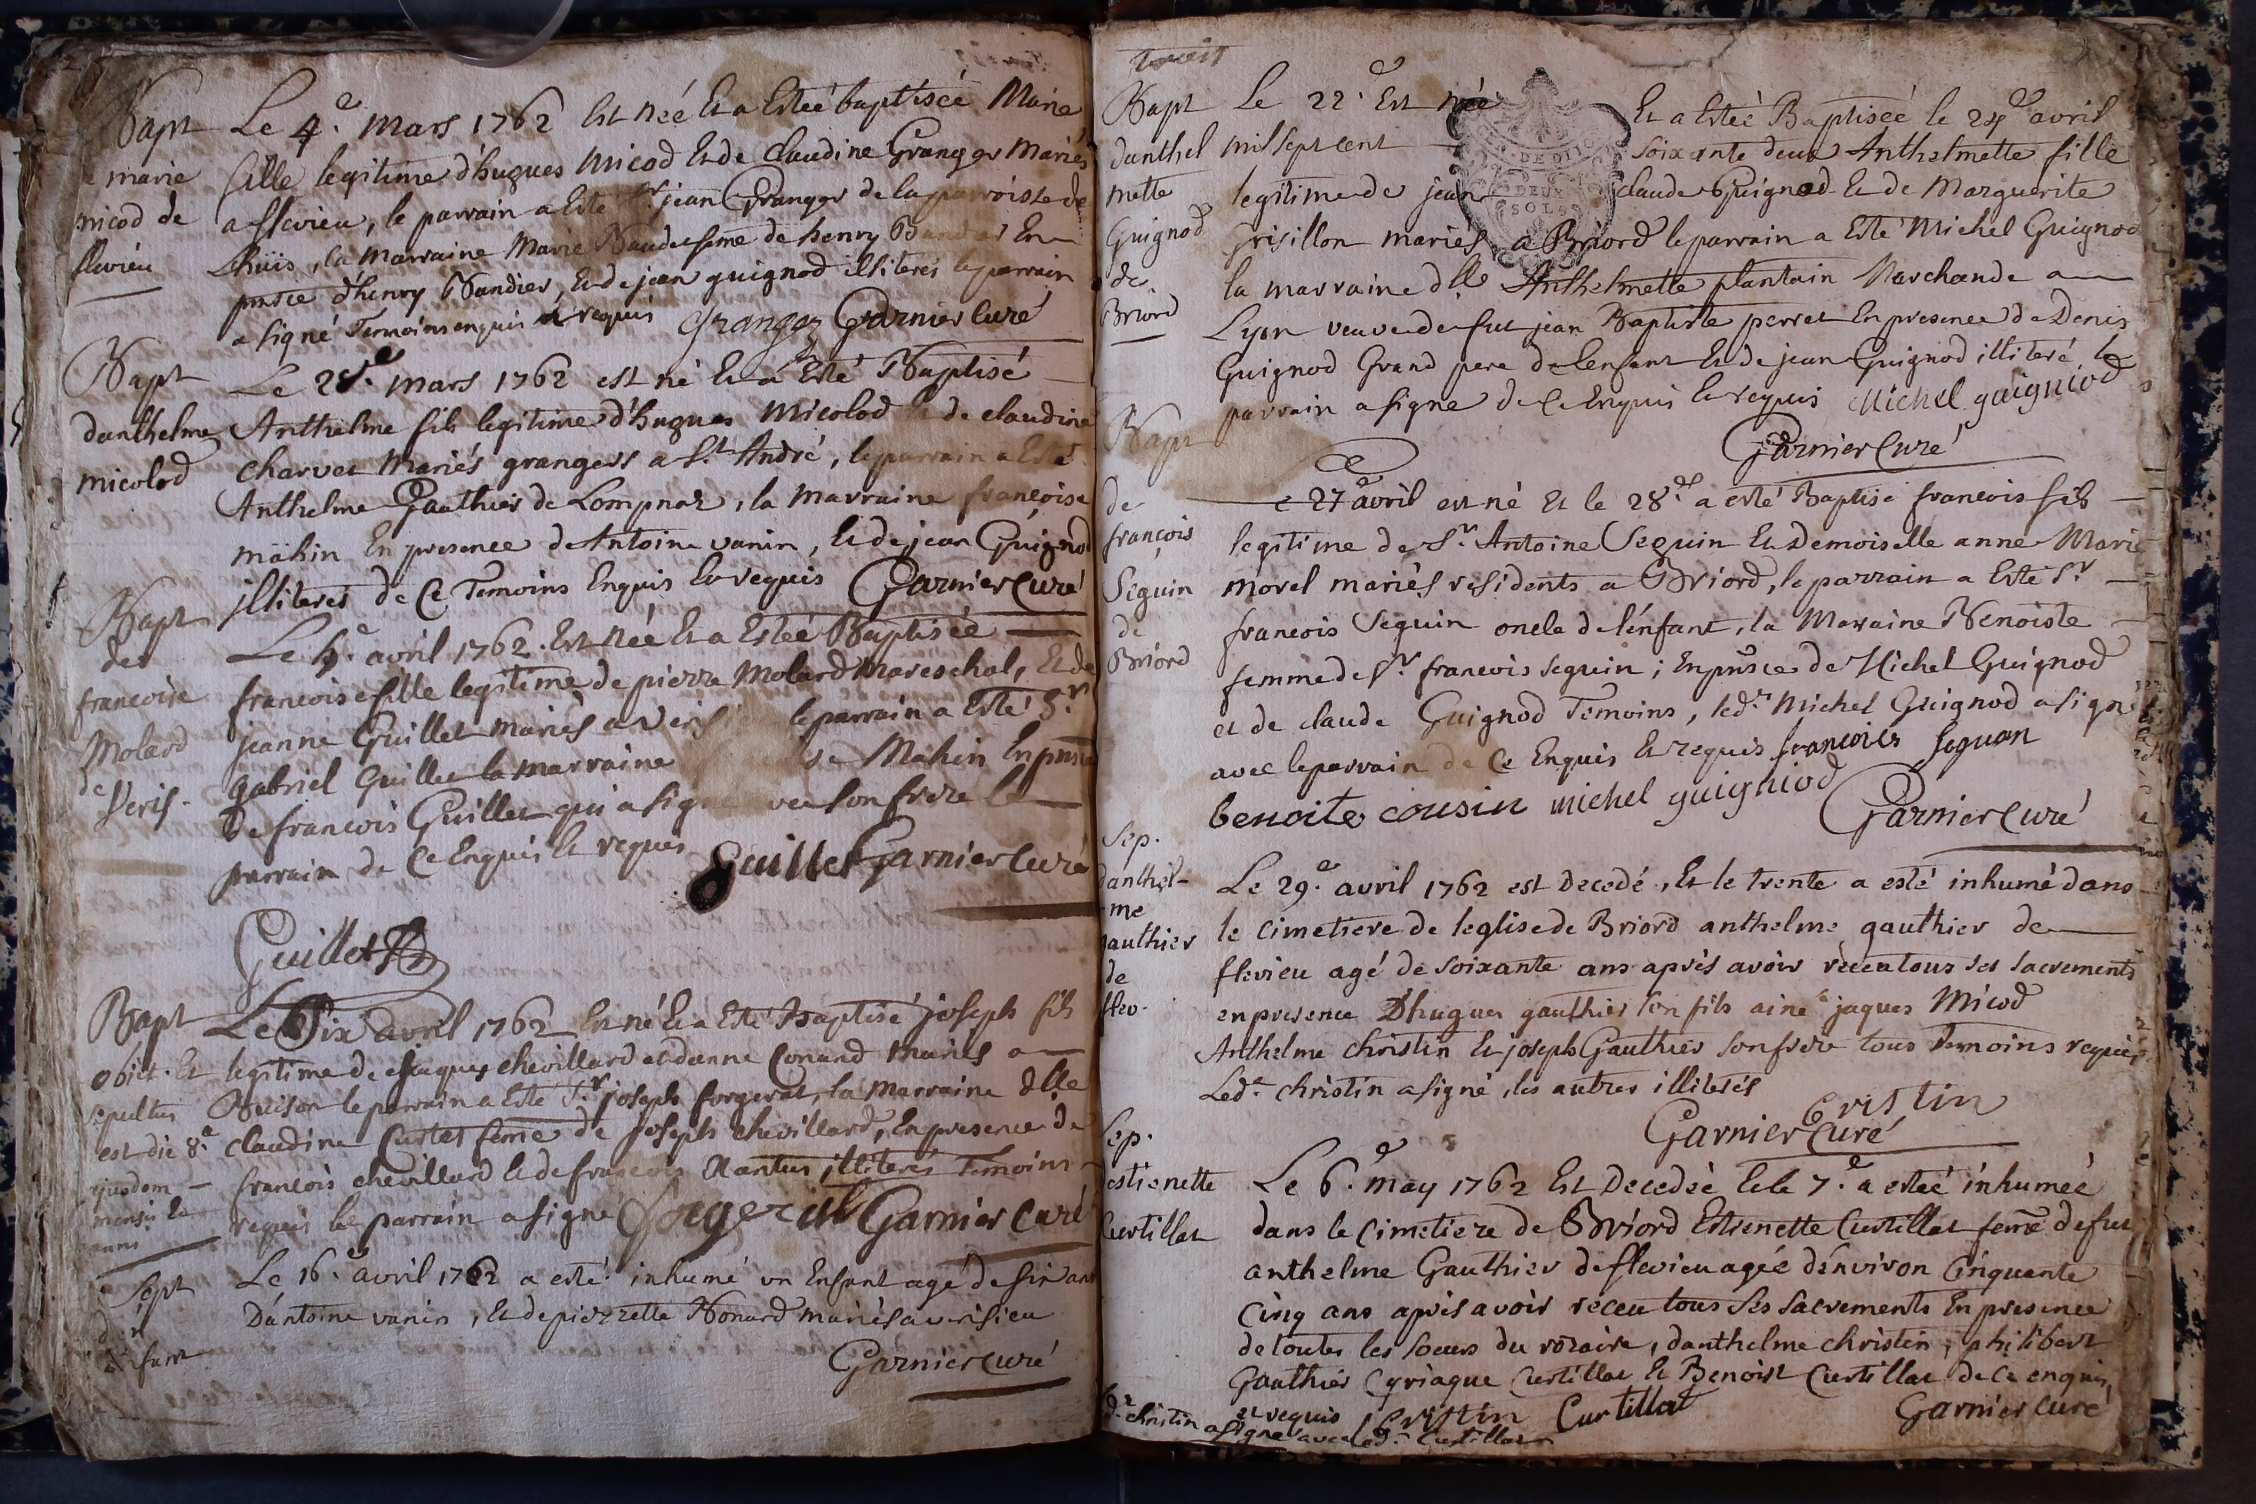 Bapt
marie
micod de
flevieu
Le 4.e mars 1762 Est née Et a Estée baptisée Marie
fille legitime d'hugues micod Et de Claudine Granger Mariés
a flevieu, le parrain a Esté Sr jean Granger de la parroisse de
Lhuis, la marraine Marie Baudet feme de henry Bandier En
pnsce d'henry Bandier, Et de jean guignod illiterés le parrain
a signé Temoins enquis et requis Granger Garnier Curé
Bapt
danthelme
micolod
Le 28.e mars 1762 est né Et a Esté Baptisé
Anthelme fils legitime d'hugues Micolod Et de claudine
charvet Mariés grangers a St. André, le parrain a Esté
Anthelme Gauthier de Lompnas, la marraine françoise
mähin En presence de Antoine vanin, Et de jean Guignod
illiteres de Ce Temoins Enquis Et requis Garnier Curé
Bapt
de
francoise
Molard
de
Veris.
Le 4.e avril 1762. Est née Et a Estée Baptisée
francoise fille legitime de pierre Molard Mareschal, Et de
jeanne Guillet mariés a Veris le parrain a Esté Sr
gabriel Guillet la marraine Mähin En pnsce
de francois Guillet qui a signé avec son frere le
parrain de Ce Enquis Et requis Guillet Garnier Curé
Guillet
Bapt
obiit. Et
sepultus
est die 8.e
ejusdem
mensis et
anni
Le Six avril 1762 Est né Et a Esté Baptisé joseph fils
legitime de jaques chevillard et danne Conand Mariés a
Buison le parrain a Esté Sr. joseph forgerat, la marraine dlle
claudine Curtet feme de joseph chevillard, En presence de
francois chevillard Et de francois Nantus illiterés Temoins
requis le parrain a signé forgerat Garnier Curé
Sept
d'un
Enfant
Le 16.e avril 1762 a esté inhumé un Enfant agé de six ans
D'antoine vanin, Et de pierrette Bonard mariés a verisieu
Garnier Curé
Bapt
danthel
mette
Guignod
de
Briord
Le 22.e Est née Et a Estée Baptisée le 24.e avril
mil sept cent soixante deux Anthelmette fille
legitime de jean claude Guignod Et de Marguerite
Grisillon mariés a Briord le parrain a Esté Michel Guignod
la marraine dlle Anthelmette plantain Marchande a
Lyon veuve de fut jean Baptiste perret En presence de Denis
Guignod Grand pere de Lenfant Et de jean Guignod illiteré le
parrain a signé de Ce Enquis Et requis Michel guigniod
Garnier Curé
DE DIJO
DEUX
SOLS
Bapt
de
françois
Seguin
de
Briord
Le 27.e avril est né Et le 28.e a esté Baptisé francois fils
legitime de Sr. Antoine Seguin Et Demoiselle anne Marie
morel mariés residents a Briord, le parrain a Esté Sr
francois Seguin oncle de lenfant, la Maraine Benoiste
femme de Sr. francois seguin; En pnsce de Michel Guignod
et de claude Guignod Temoins, led.t Michel Guignod a signé
avec le parrain de Ce Enquis Et requis francois Seguan
benoite cousin michel guigniod
Garnier Curé
Sep.
danthel-
me
gauthier
de
flev.
Le 29.e avril 1762 est Decedé, Et le trente a esté inhumé dans
le cimetiere de leglise de Briord anthelme gauthier de
flevieu agé de soixante ans aprés avoir receu tous ses sacrements
en presence D'hugues gauthier son fils ainé jaques Micod
Anthelme christin Et joseph Gauthier son frere tous Temoins requis
Led.t christin a signé, les autres illiterés
Cristin
Garnier Curé
Sep.
destienette
Curtillat
Le 6.e may 1762 Est Decedée Et le 7.e a estée inhumée
dans le Cimetiere de Briord Estienette Curtillat feme de fut
anthelme Gauthier de flevieu agée d'environ Cinquante
Cinq ans aprés avoir receu tous ses sacrements En presence
de toutes les soeurs du rozaire, danthelme christin, philibert
Gauthier Cyriaque Curtillat Et Benoist Curtillat de Ce enquis,
et requis Cristin Curtillat Garnier Curé
led.t christin a signé avec led.t Curtillat